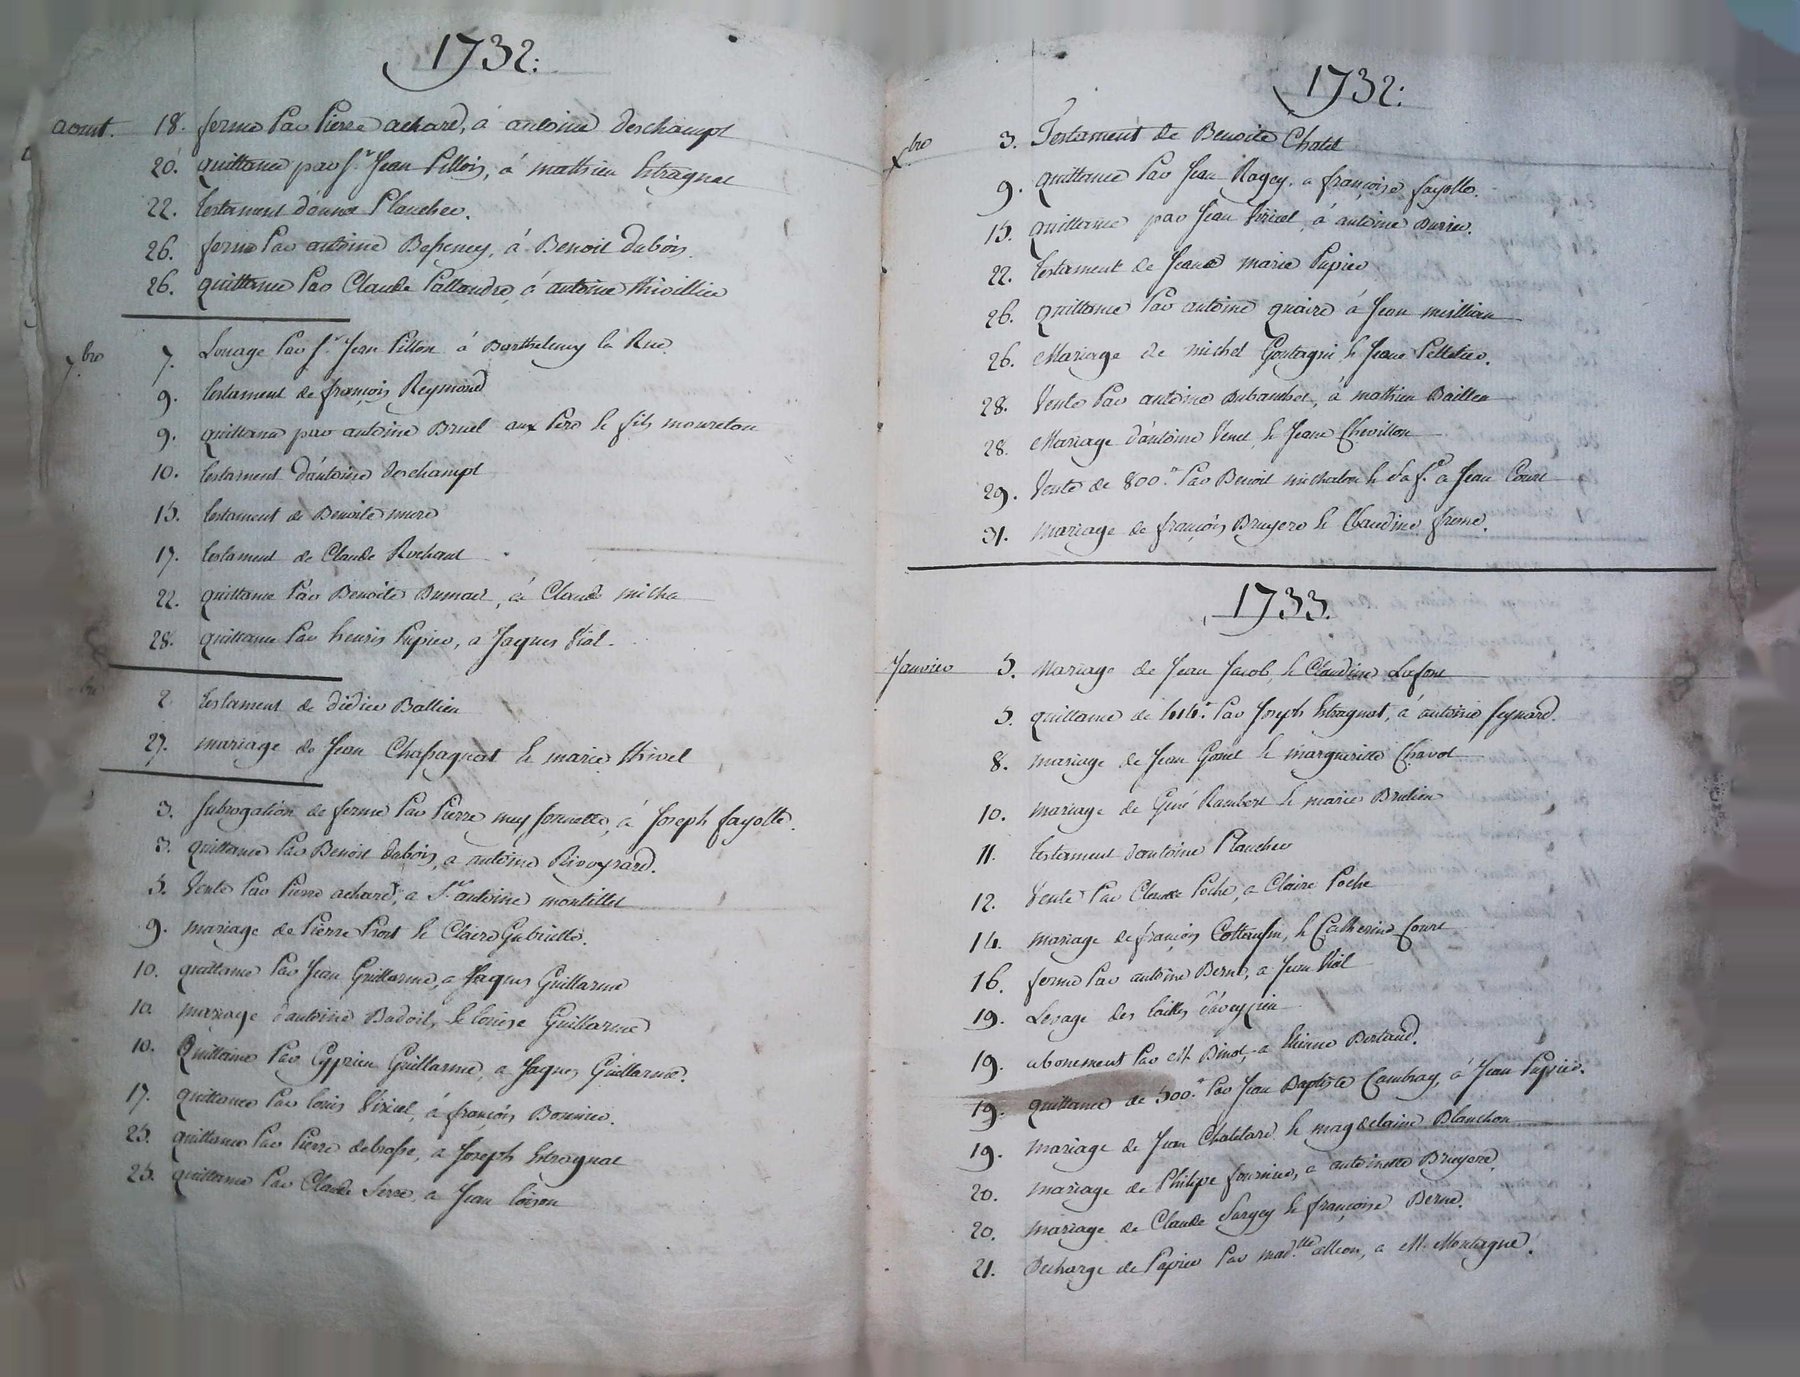 1732.
aout. 18. ferme Par Pierre achard, á antoine Deschampt
20. quittance par Sr. Jean Pillon, á mathieu Estragnat
22. testament d'anne Plancher.
26. ferme Par antoine Bessenay, á Benoit dubois.
26. quittance Par Claude Pallandre, á antoine thivillier
7.bre 7. Louage Par Sr. Jean Pillon á Barthelemy la Rue.
9. testament de francois Reymond
9. quittance par antoine Bruel aux Pere & fils moureton
10. testament d'antoine deschampt
15. testament de Benoite mure
17. testament de Claude Rochant
22. quittance Par Benoite Dumas, á Claude micha
28. quittance Par henris Pupier, a Jaques Vial.
2. testament de didier Ballieu
27. mariage de Jean Chassagnat & marie thivel
3. Subrogation de ferme Par Pierre, á Joseph fayolle.
3. quittance Par Benoit dubois, a antoine Rivoyrard.
5. Vente Par Pierre achard, a Sr. antoine montillet
9. mariage de Pierre Piot & Claire Gubielle.
10. quittance Par Jean Guillarme, a Jaques Guillarme
10. mariage d'antoine Badoil, & louise Guillarme
10. Quittance Par Cyprien Guillarme, a Jaques Guillarme.
17. quittance Par louis Viricel, á francois Bonnier.
25. quittance Par Pierre debrosse, a Joseph Estragnat
25. quittance Par Claude Serre, a Jean loison
1732.
Xbre 3. Testament de Benoite Chatel
9. quittance Par Jean Ragey, a francoise fayolle.
15. quittance par Jean Viricel, á antoine Durieu.
22. testament de Jeane marie Pupier
26. quittance Par antoine quaire á Jean millian
26. Mariage de michel Goutagni & Jeane Pelletier.
28. Vente Par antoine Dubanchet, á mathieu Baillen
28. Mariage d'antoine Venet & Jeane Chevillon
29. Vente de 800.tt Par Benoit michalon & sa fe. a Jean Court
31. mariage de francois Bruyere & Claudine freme.
1733.
Janvier 5. Mariage de Jean Jacob, & Claudine Lafont
5. quittance de Par Joseph Estragnat, á antoine feynard.
8. mariage de Jean Gonel & margueritte Chavot
10. mariage de Gené Rambert & marie Brulien
11. testament d'antoine Plancher
12. Vente Par Claude Poche, a Claire Poche
14. mariage de francois Cottansin, & Catherine Court
16. ferme Par antoine Berne, a Jean Vial
19. Levage des tailles d'aveyzin
19. abonement Par M. Binot, a Etienne Bertaud.
19. quittance de 500.tt Par Jean Baptiste Cambray, á Jean Pupier.
19. mariage de Jean Chatelard & magdelaine Blanchon
20. mariage de Philipe fournier, a antoinette Bruyere.
20. mariage de Claude Sargey & francoise Berne.
21. Decharge de Papier Par mad.lle alleon, a M. Montagne.